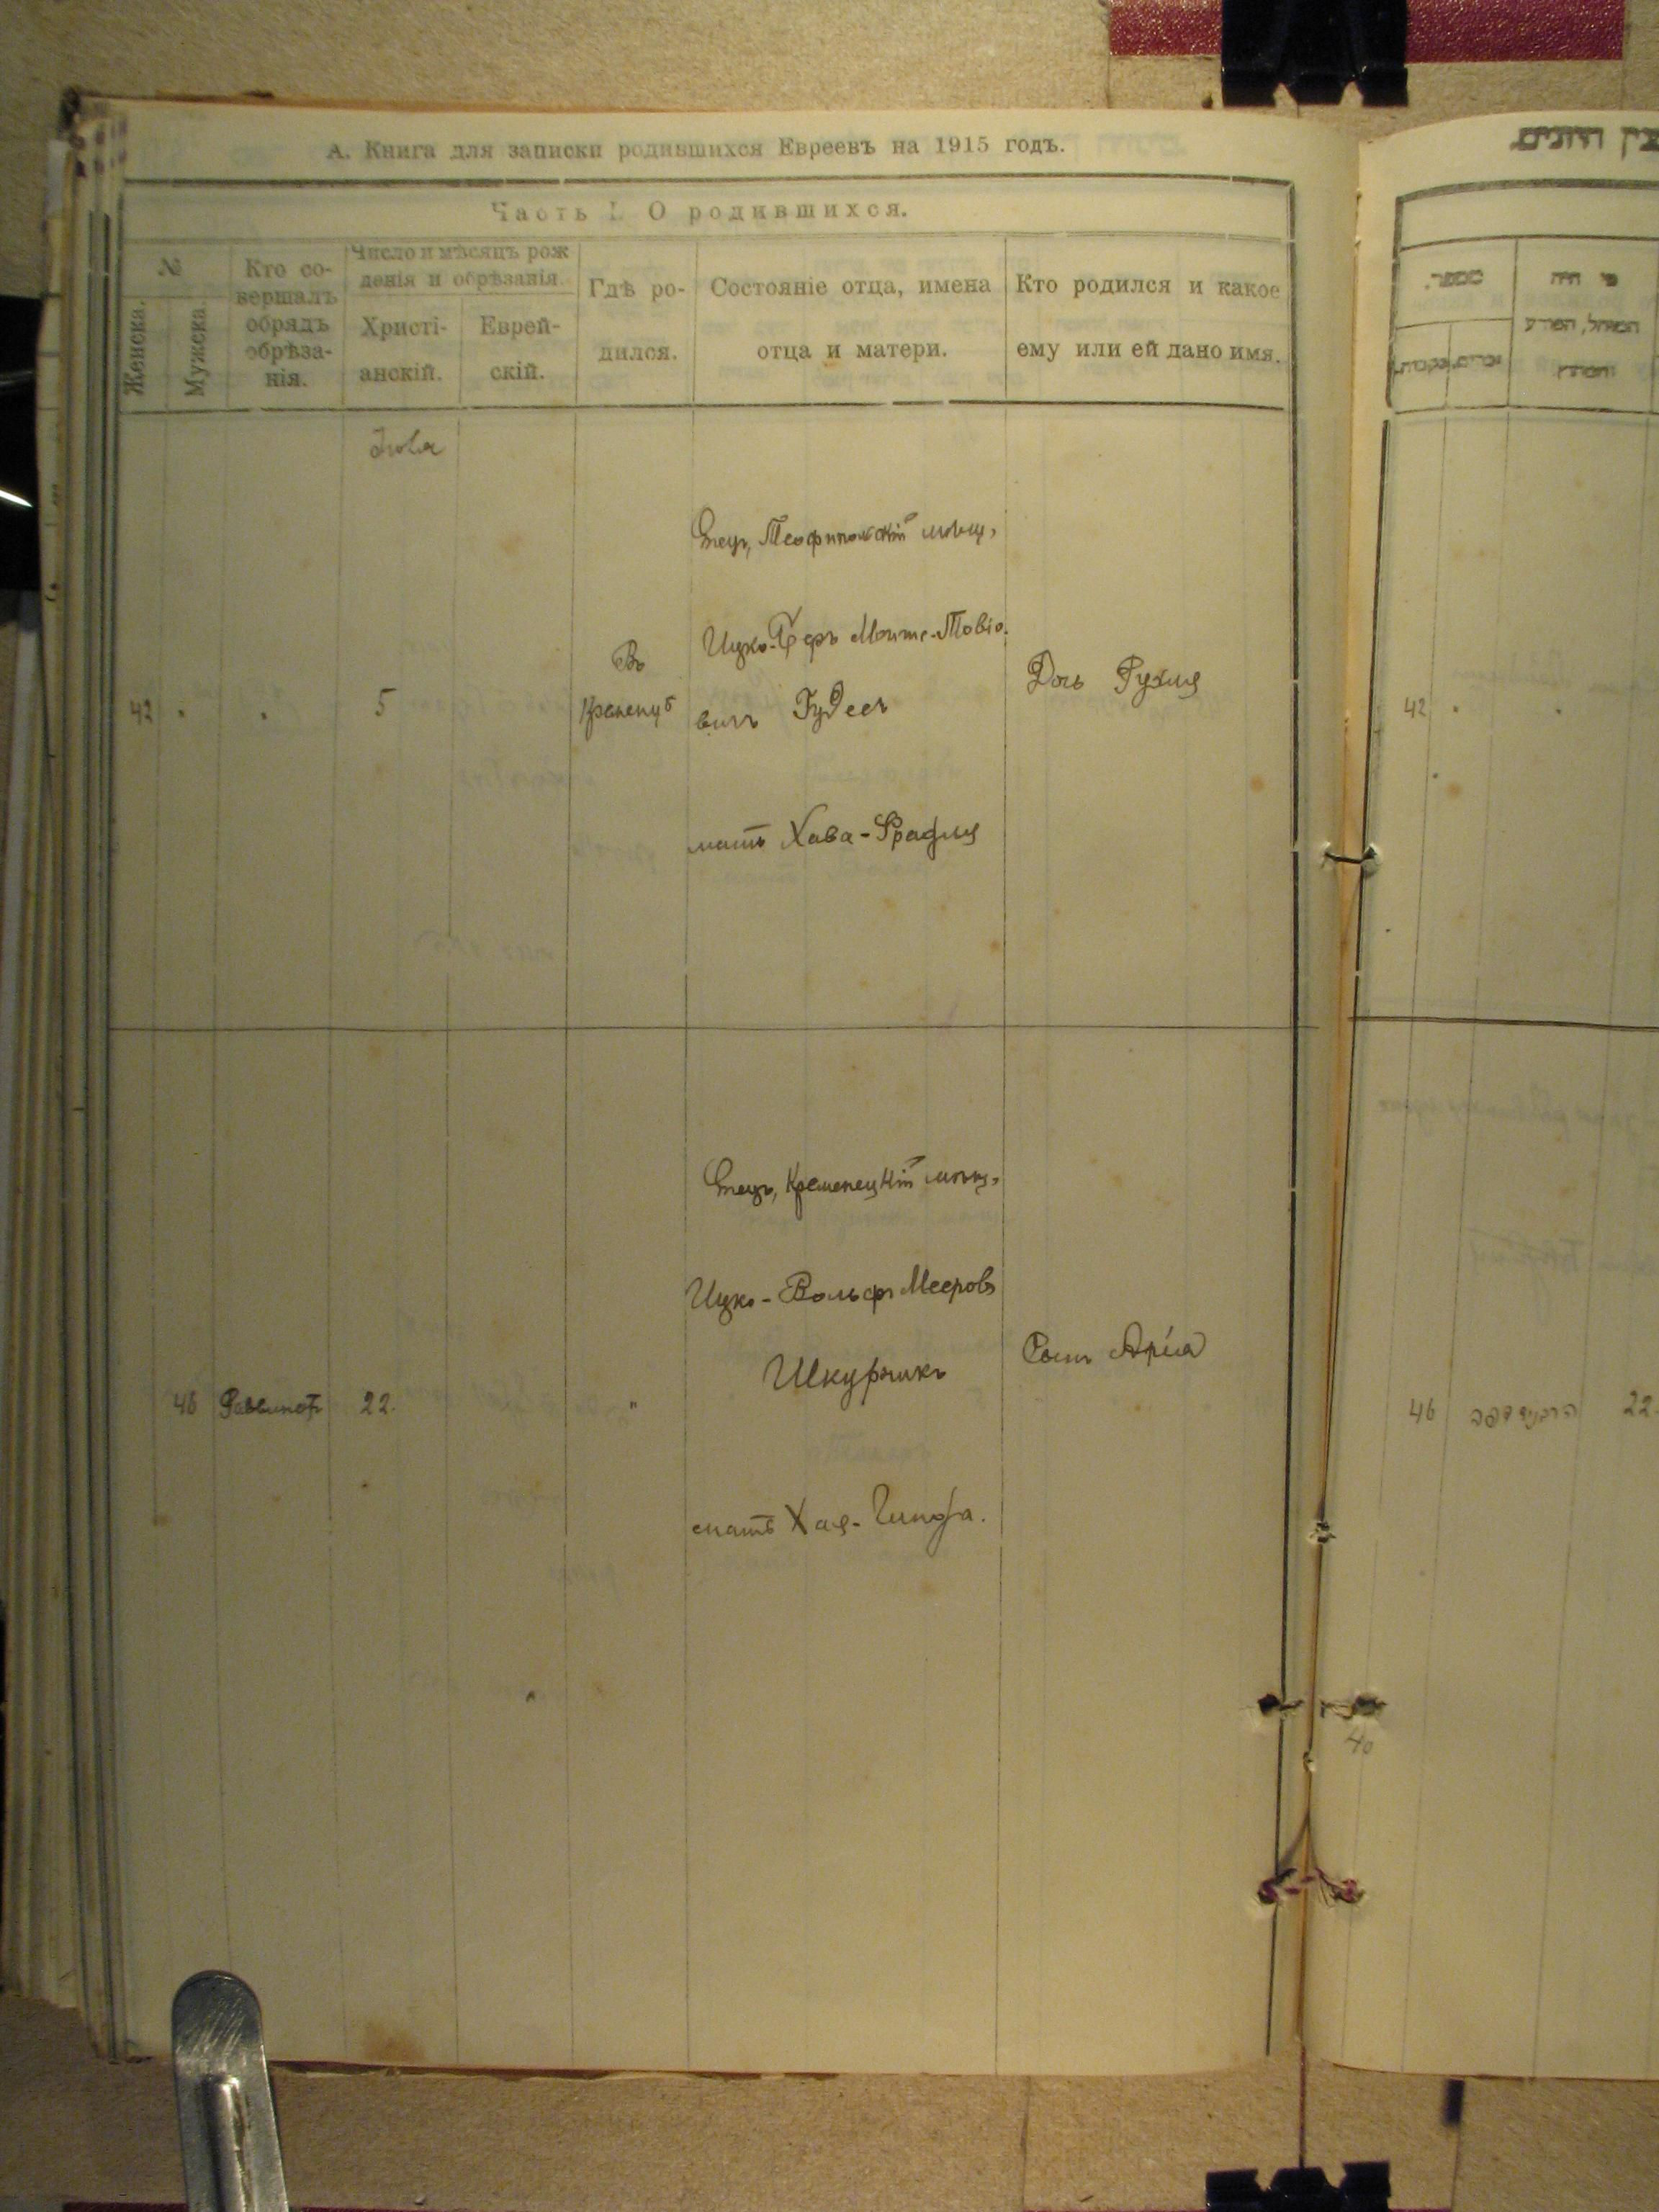 А. Книга для записки родившихся Евреевъ на 1915 годъ.
Часть I. О родившихся.
№
Женска.
Мужска.
Кто со-
вершалъ
обрядъ
обрѣза-
нія.
Число и мѣсяцъ рож
денія и обрѣзанія.
Христі-
анскій.
Еврей-
скій.
Гдѣ ро-
дился.
Состояніе отца, имена
отца и матери.
Кто родился и какое
ему или ей дано имя.
42
5
Въ
Отецъ, Теофипольскій мѣщ.
Ицко-Беръ Мошке-Товіо.
вичъ
мать Хава-Фрадля
Дочь Рухля
42
46
Раввинъ
22.
"
Отецъ, Кременецкій мѣщ.
Ицко-Вольфъ Мееровъ
Шкурникъ
мать Хая-
Сынъ Арія
46
22
40